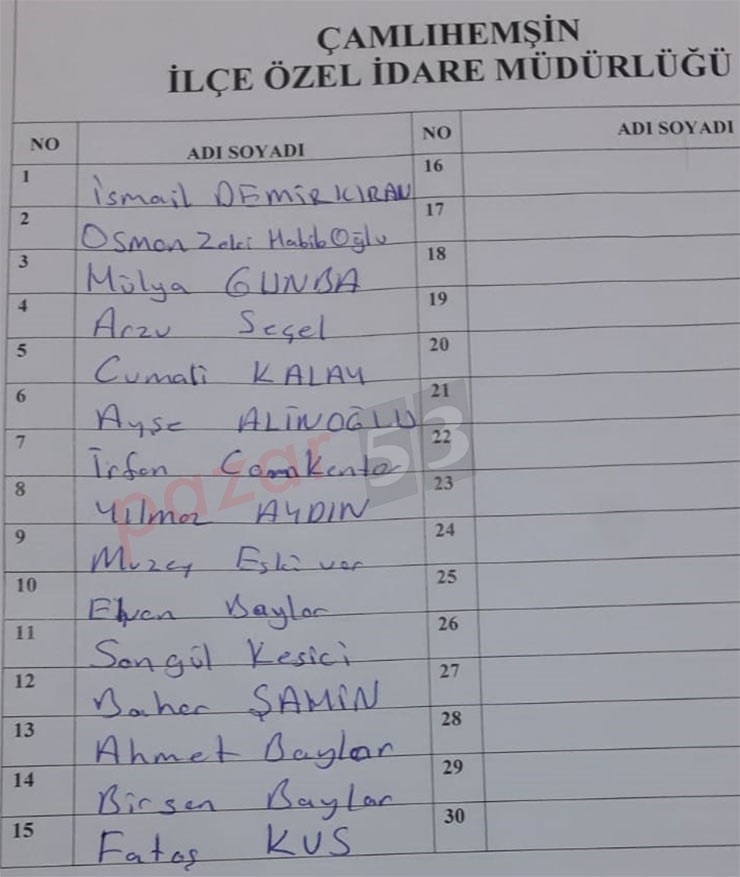 ÇAMLIHEMŞİN
İLÇE ÖZEL İDARE MÜDÜRLÜĞÜ
NO ADI SOYADI NO ADI SOYADI
1 İsmail DEMİRKIRAN 16
2 Osman Zeki HabibOğlu 17
3 Mülya GUNBA 18
4 Arzu Seçel 19
5 Cumali KALAY 20
6 Ayşe ALİNOĞLU 21
7 İrfan 22
8 Yılmaz AYDIN 23
9 24
10 Baylar 25
11 Songül Kesici 26
12 Bahar ŞAMİN 27
13 Ahmet Baylar 28
14 Birsen Baylar 29
15 Fatoş KUS 30
pazar 53